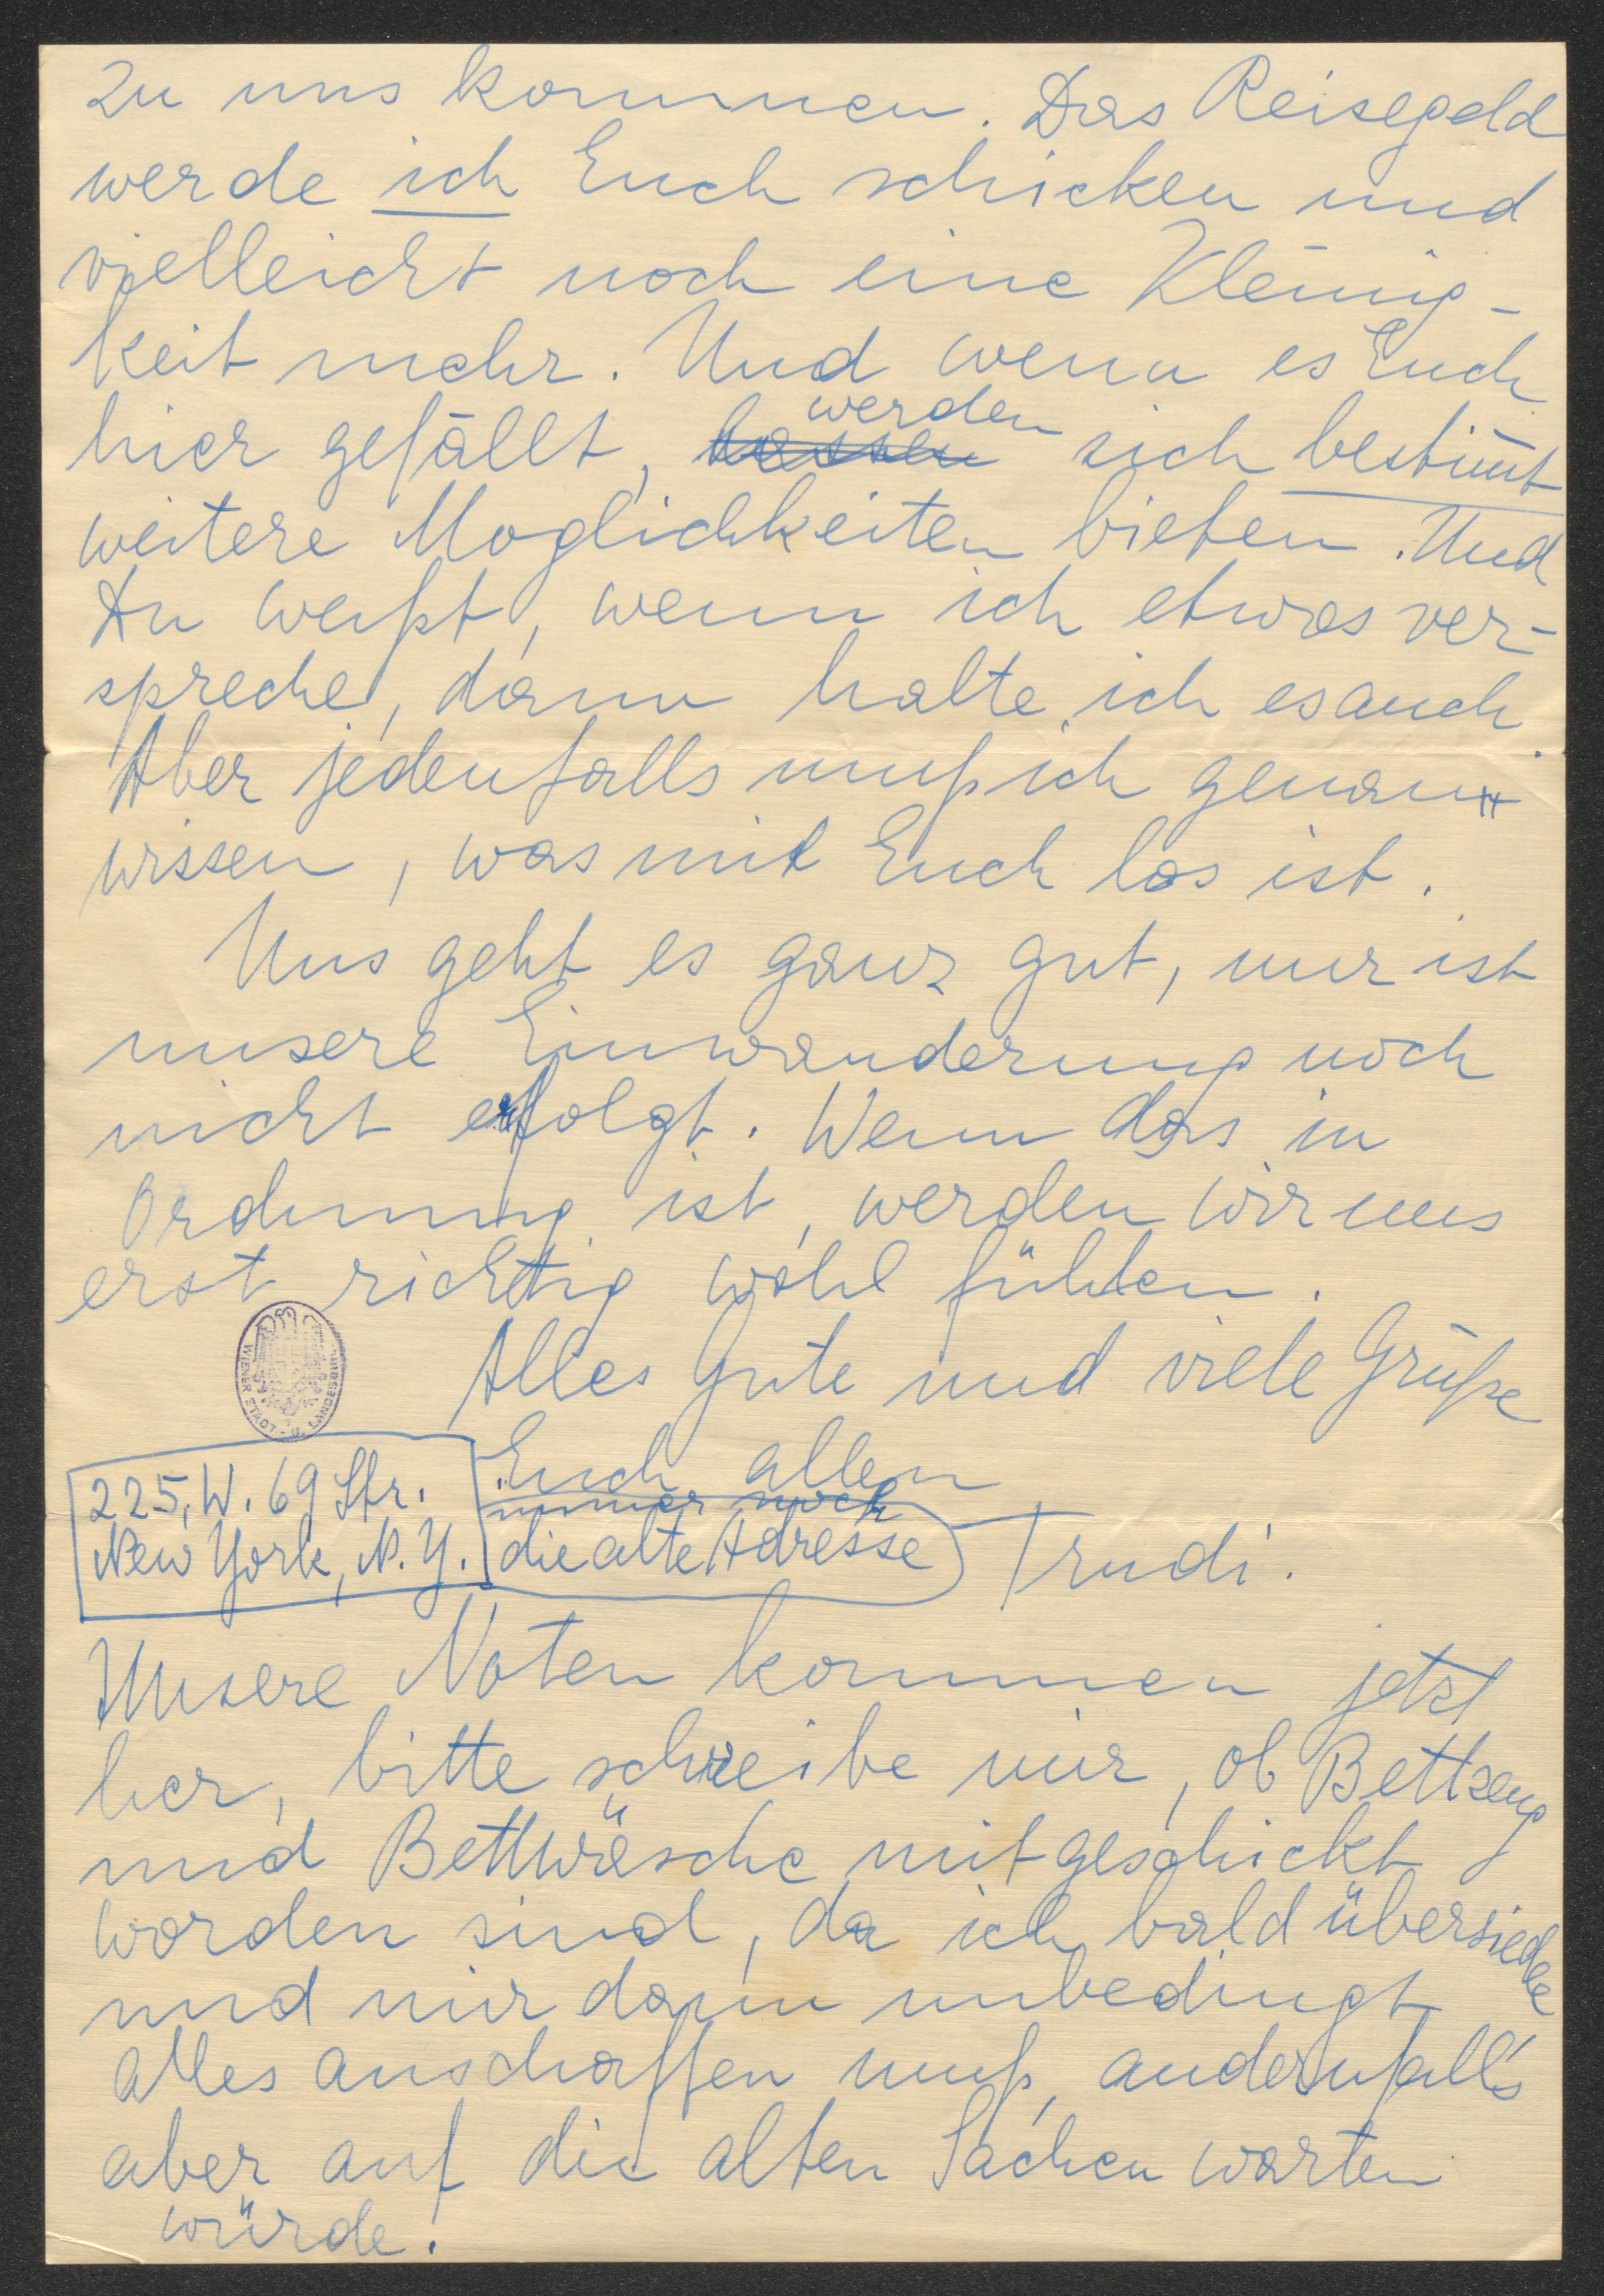 zu uns kommen. Das Reisegeld
werde ich Euch schicken und
vielleicht noch eine Kleinig-
keit mehr. Und wenn es Euch
hier gefällt, lassen werden sich bestim̄t
weitere Moglichkeiten bieten. Und
Du weißt, wenn ich etwas ver-
spreche, dann halte ich es auch.
Aber jedenfalls muß ich genau
wissen, was mit Euch los ist.
Uns geht es ganz gut, nur ist
unsere Einwanderung noch
nicht erfolgt. Wenn das in
Ordnung ist, werden wir uns
erst richtig wohl fühlen.
Alles Gute und viele Grüße
Euch allen
Trudi.
WIENER STADT- U. LANDESBIBL.
225, W. 69 Str.
New York, N.Y.
immer noch
die alte Adresse
Unsere Noten kommen jetzt
her, bitte schreibe mir, ob Bettzeug
und Bettwäsche mitgeschickt
worden sind, da ich bald übersiedle
und mir dann unbedingt
alles anschaffen muß, andernfalls
aber auf die alten Sachen warten
würde.